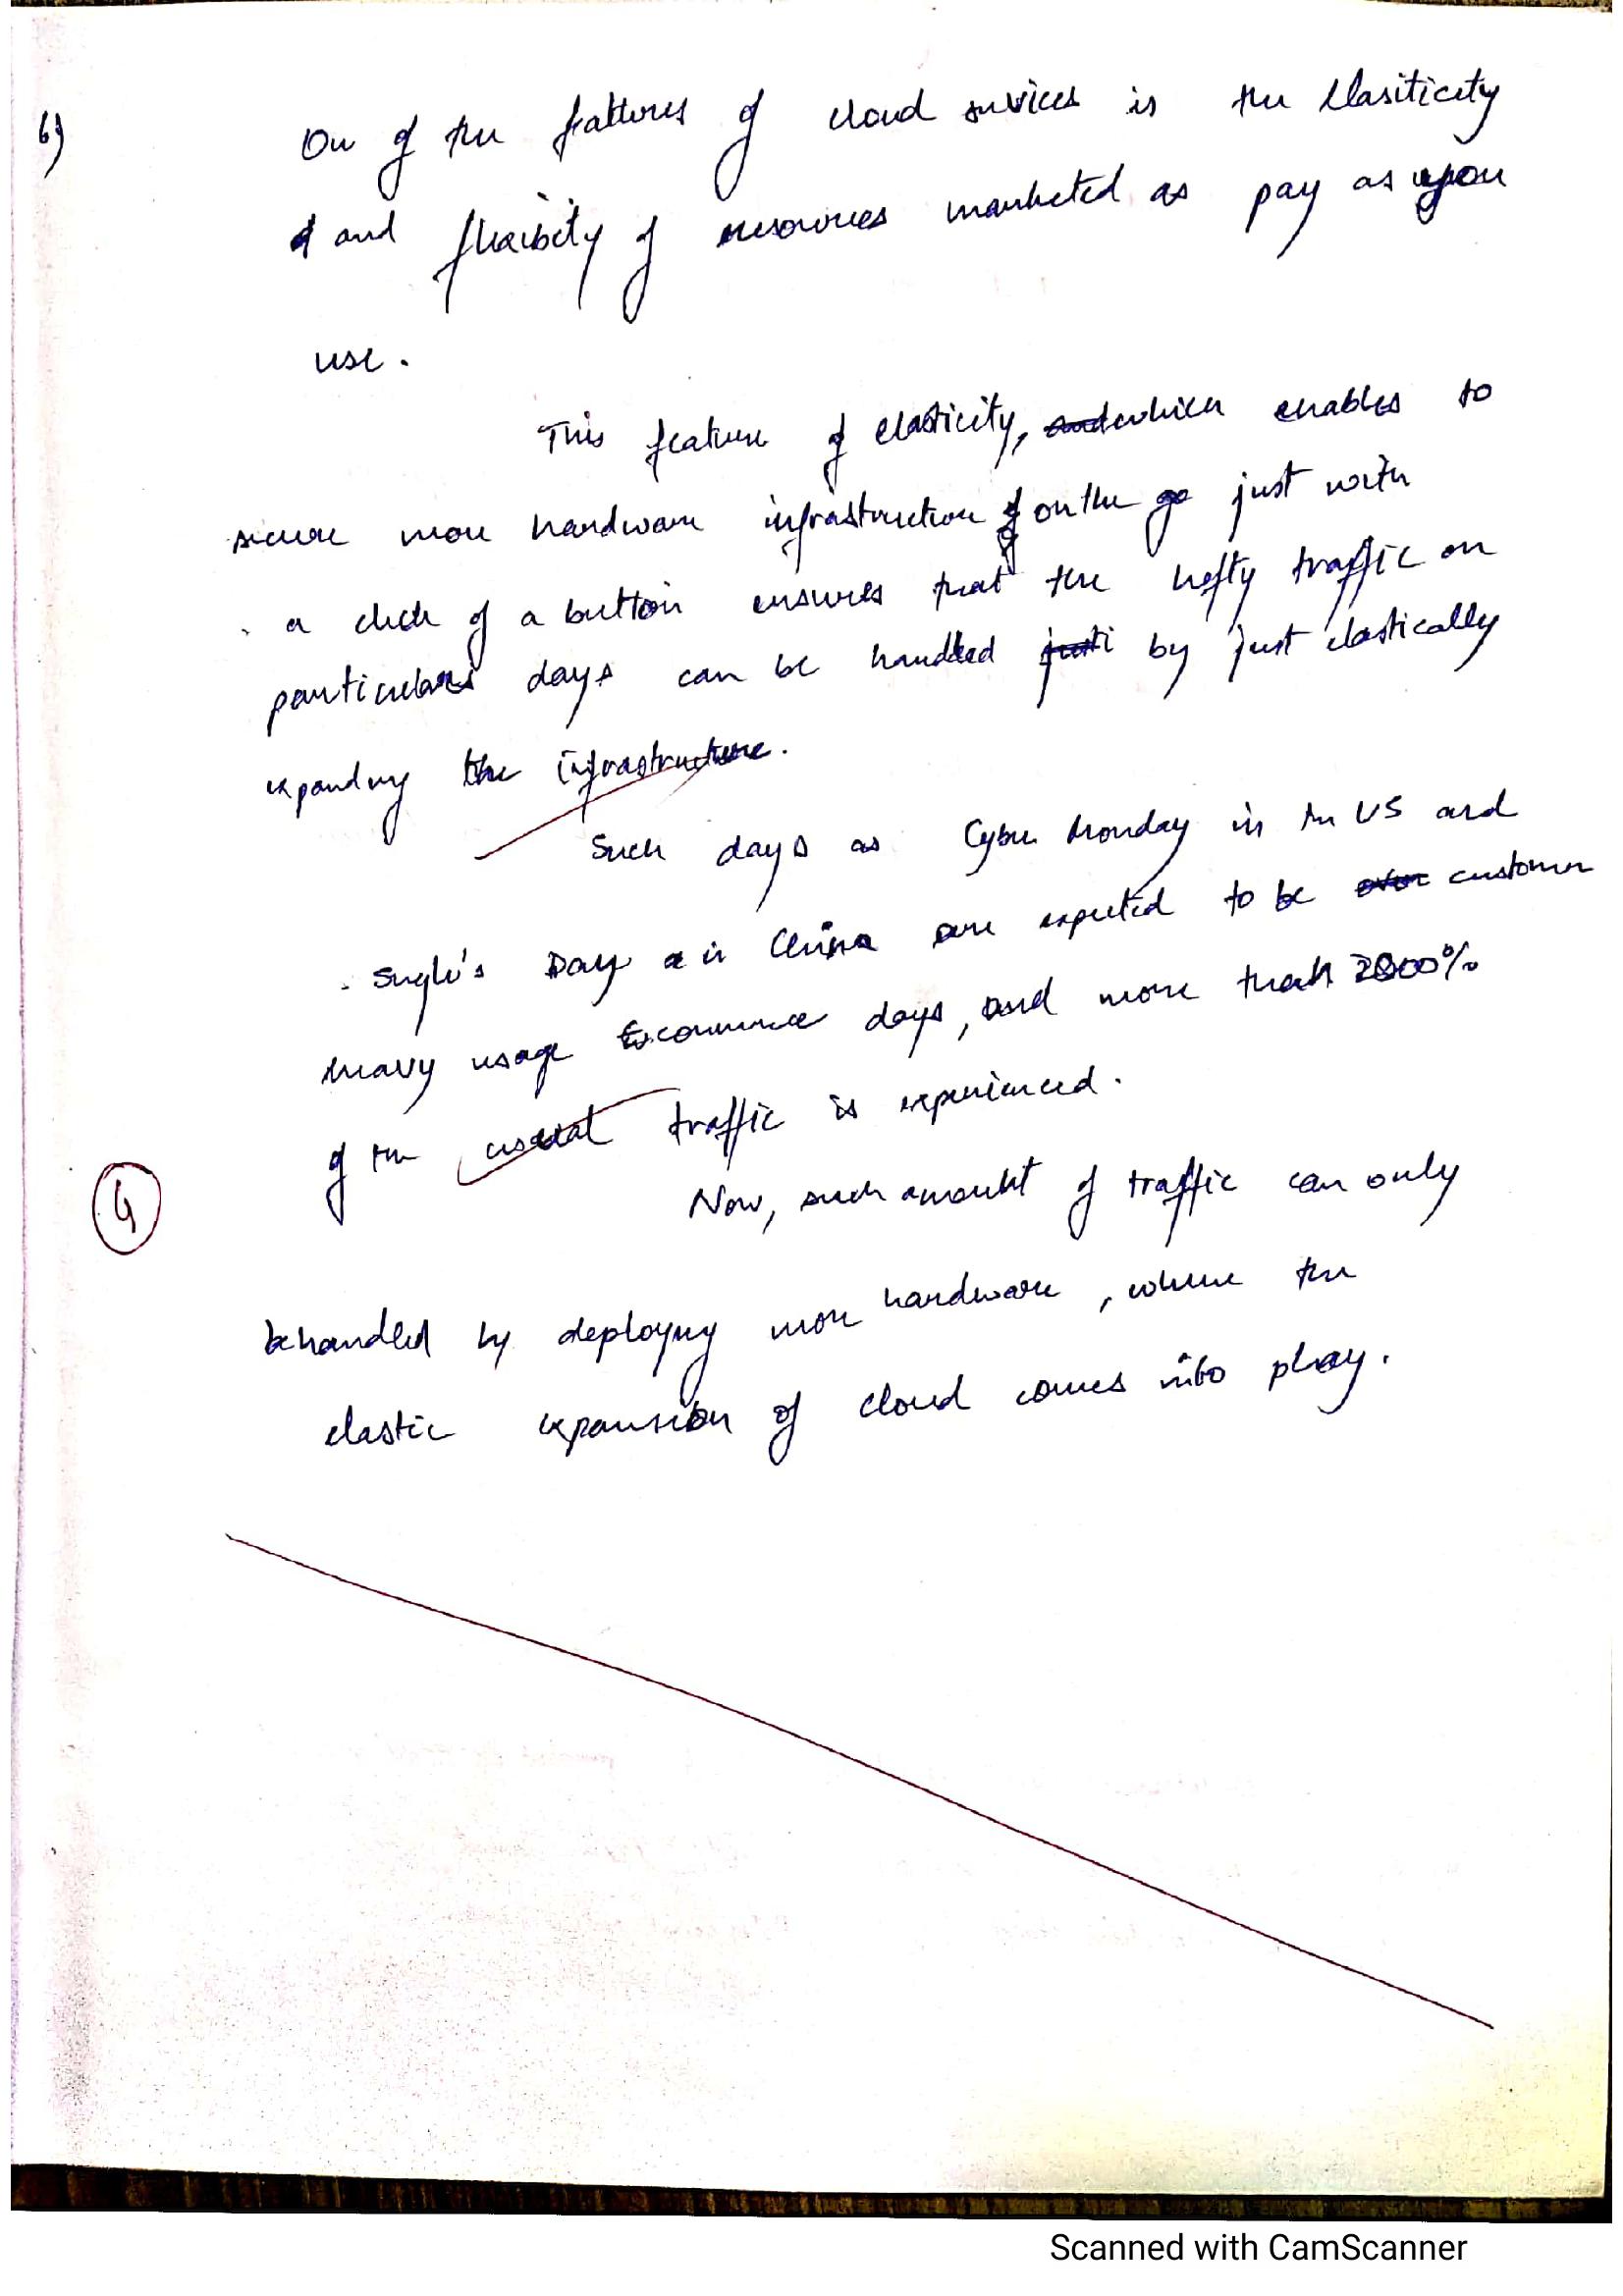 6)
One of the features of cloud services is the elasiticity
and flexibity of resources marketed as pay as you
use.
This feature of elasticity, which enables to
secure more hardware infrastructure on the go just with
a click of a button ensures that the hefty traffic on
particulars days can be handled by just elastically
expanding the infrastructure.
Such days as Cyber Monday in the US and
Single's Day in China are expected to be customer
heavy usage Ecommerce days, and more than %
of the usual traffic is experienced.
4
Now, such amount of traffic can only
be handled by deploying more hardware, where the
elastic expansion of cloud comes into play.
Scanned with CamScanner